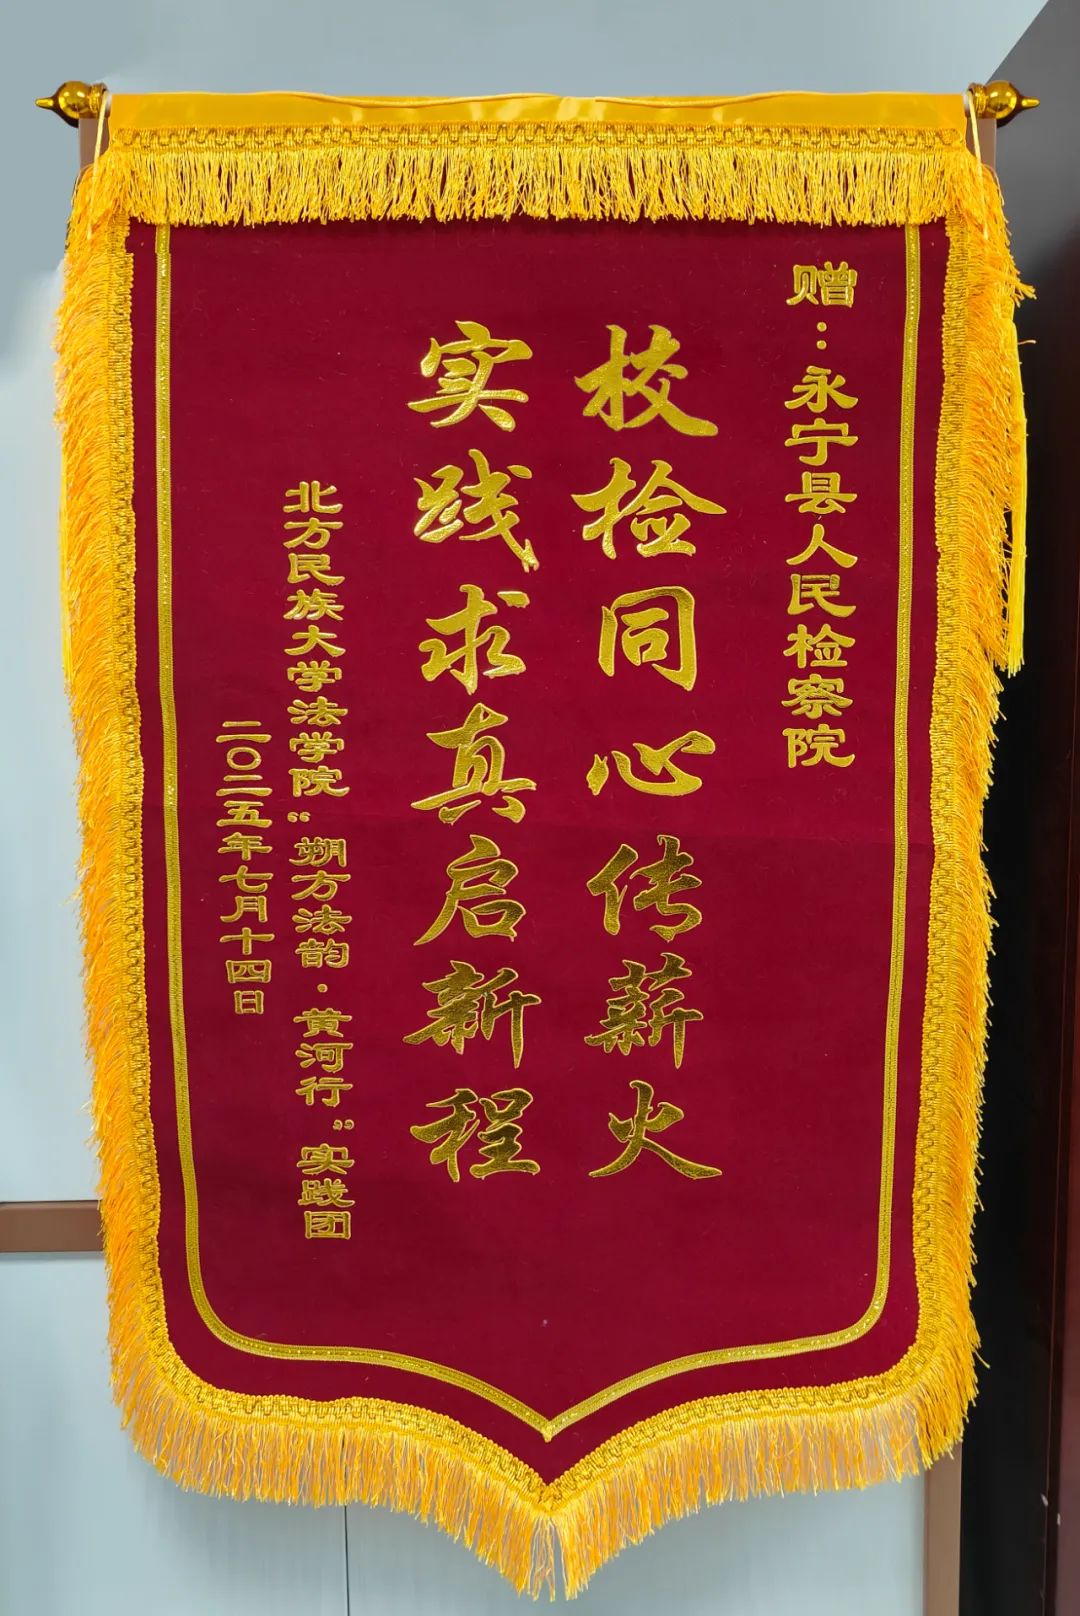 赠：永宁县人民检察院
校检同心传薪火
实践求真启新程
北方民族大学法学院“朔方法韵·黄河行”实践团
二〇二五年七月十四日